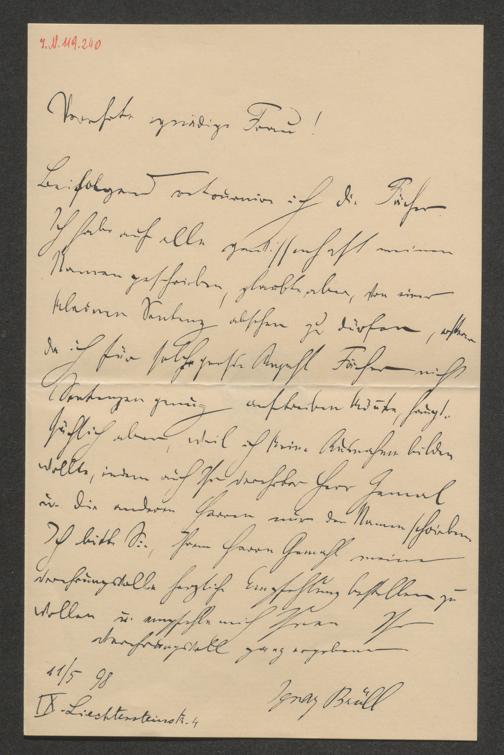 I.N. 119.240
Verehrte gnädige Frau!
Beifolgend retournire ich die Fächer
Ich habe auf alle gewissenhaft meinen
Namen geschrieben, glaubte aber, von einer
kleinen Sentenz absehen zu dürfen,
da ich für solch grosse Anzahl Fächer nicht
Sentenzen genug auftreiben könnte, haupt-
sächlich aber, weil ich keine Ausnahme bilden
wollte, indem auch Ihr verehrter Herr Gemal
u. die anderen Herren nur den Namen schrieben.
Ich bitte Sie, Ihrem Herrn Gemahl meine
verehrungsvolle herzliche Empfehlung bestellen zu
wollen u. empfehle mich Ihnen Ihr
verehrungsvoll ganz ergebener
11/5 98
Ignaz Brüll
IX. Liechtensteinstr. 4